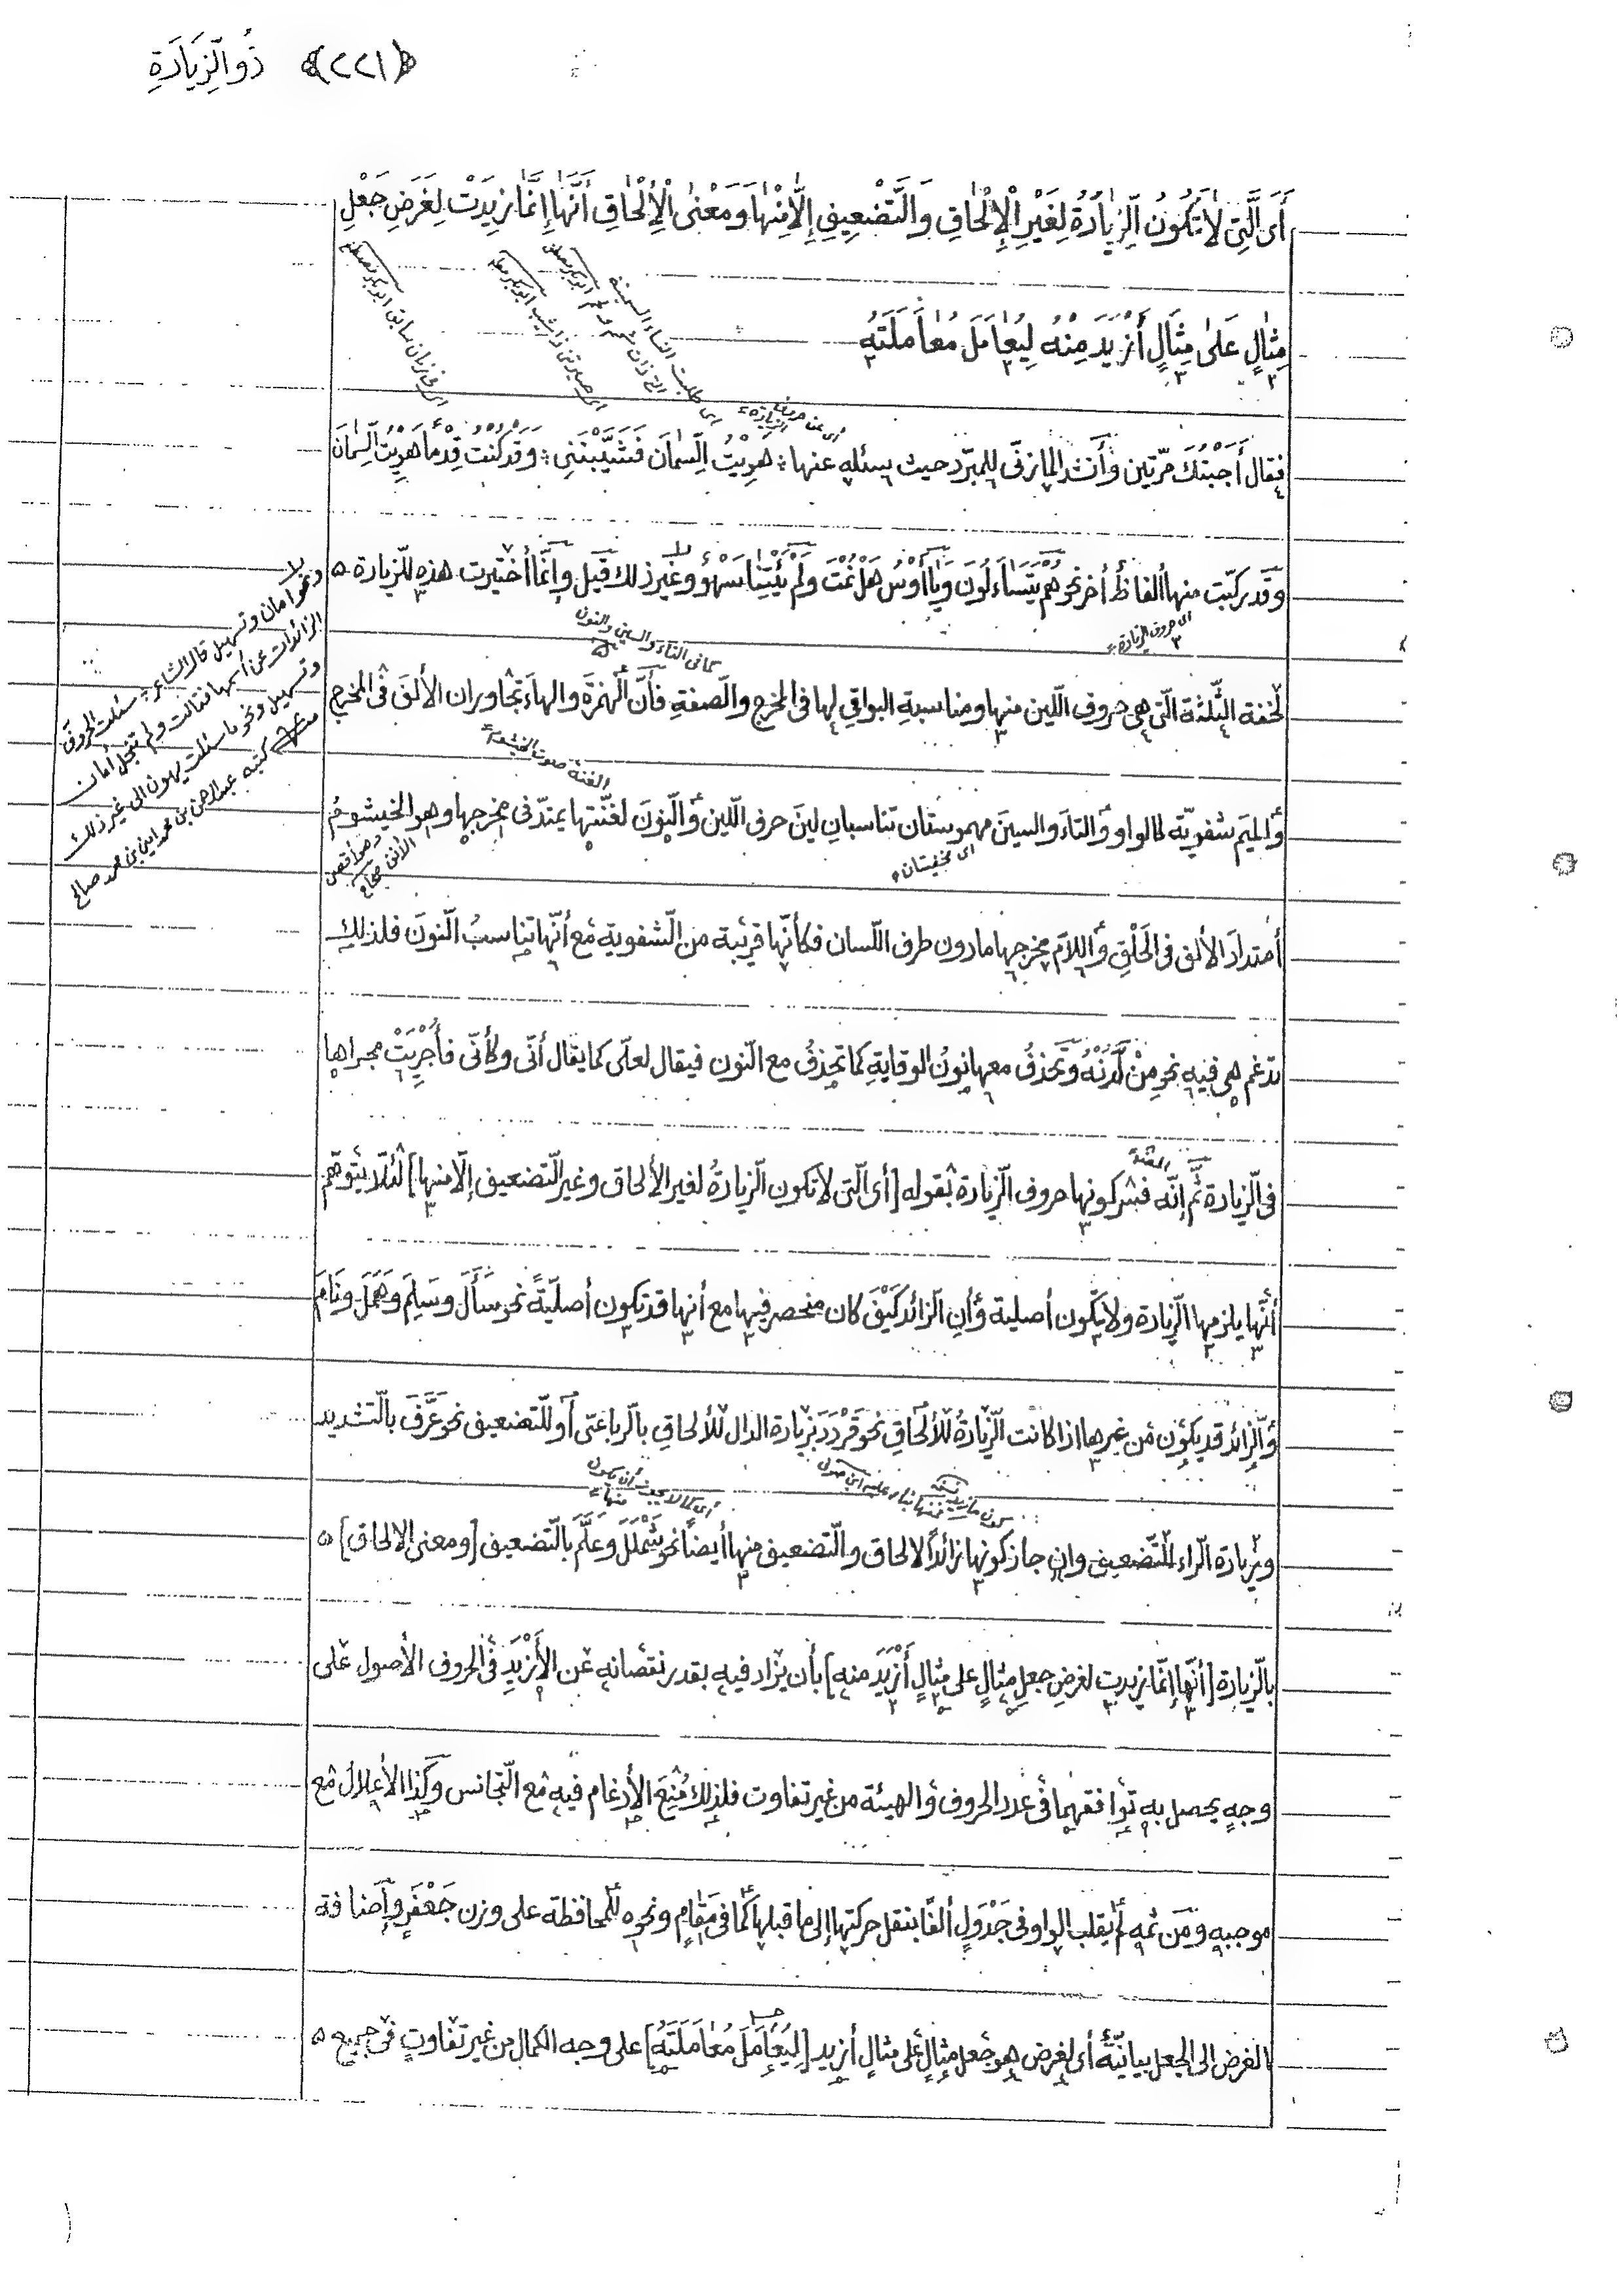 ﴿٢٢١﴾ ذُو الزِّيَادَةِ
أَىِ الَّتِى لَا تَكُونُ الزِّيَادَةُ لِغَيْرِ الْإِلْحَاقِ وَالتَّضْعِيفِ إِلَّا مِنْهَا وَمَعْنَى الْإِلْحَاقِ أَنَّهَا إِنَّمَا زِيدَتْ لِغَرَضِ جَعْلِ
مِثَالٍ عَلَى مِثَالٍ أَزْيَدَ مِنْهُ لِيُعَامَلَ مُعَامَلَتَهُ
أى عن حروف الزيادة
فقال أَجَبْتُكَ مرّتين وأنشد المازنىّ للمبرّد حيث يسئله عنها : هَوِيْتُ السِّمَانَ فَشَيَّبْنَنِى : وَقَدْ كُنْتُ قِدْمًا هَوِيْتُ السِّمَانَ
وقد ركّبت منها ألفاظ أخر نحو هُمْ يَتَسَاءَلُونَ وَيَا أَوْسُ هَلْ نِمْتَ وَلَمْ يَأْتِنَا سَهْوٌ وغير ذلك قيل وإنّما أختيرت هذه للزيادة
أى حروف الزيادة
كما فى التاء والسين والنون
لخفة الثّلثة الّتى هى حروف اللّين منها ومناسبةِ البواقي لها فى المخرج والصّفةِ فأنّ الهمزةَ والهاءَ تجاوران الألفَ فى المخرج
الغنة صوت الخيشوم
والميمَ شفويّة كالواو والتاءَ والسينَ مهموستان تناسبانِ لينَ حرف اللّين والنّونَ لغنّتها يمتدّ فى مخرجها وهو الخيشومُ
اى مخفيتان
وهو أقصى الأنف صحاح
أمتدادَ الألف فى الحَلْقِ واللامَ مخرجها مادون طرف اللّسان فكأنّها قريبة من الشّفوية مع أنّها تناسبُ النّونَ فلذلك
تدغم هى فيه نحو مِنْ لَدُنْهُ وتحذفُ معها نونُ الوقايةِ كما تحذفُ مع النّون فيقال لعلّى كما يقال أنّى وكأنّى فأُجْرِيَتْ مجراها
فى الزّيادة ثمّ إنّه فسّر كونها حروف الزّيادة بقوله [أى الّتى لا تكون الزّيادةُ لغير الألحاق وغير التّضعيف إلّا منها] لئلّا يتوهّم
أنّها يلزمها الزّيادة ولا تكون أصلية وأنِ الزائد كَيْفَ كان منحصر فيها مع أنها قد تكون أصليّةً نحو سَأَلَ وسَلِمَ وهَمَلَ ونَامَ
والزّائد قد يكون من غيرها اذا كانت الزّيادةُ للألحاقِ نحو قَرْدَدَ بزيادة الدال للألحاقِ بالرباعىّ أو للتّضعيف نحو عَرَّفَ بالتّشديد
وبزيادة الرّاء للتّضعيف وإن جاز كونها زائداً لالحاق والتّضعيف منها أيضاً نحو شَمْلَلَ وعَلَّمَ بالتّضعيف [ومعنى الإلحاق]
بالزّيادة [أنّها إنّما زيدت لغرضِ جعلِ مثالٍ على مثالٍ أَزْيَدَ منه] بأن يزاد فيه بقدر نقصانه عن الأَزْيَدِ فى الحروف الأصول على
وجهٍ يحصل به توافقهما فى عدد الحروف والهيئة من غير تفاوت فلذلك مُنِعَ الأدغام فيه مع التّجانس وكذا الأعلال مع
موجبه ومن ثمه لم يقلب الواو فى جَدْوَلٍ ألفًا بنقل حركتها إلى ما قبلها كما فى مَقَامٍ ونحوه للمحافظة على وزن جَعْفَرٍ وإضافة
الغرض الى الجعل بيانيّة أى لغرض هو جعل مثالٍ على مثالٍ أزيد [لِيُعَامَلَ مُعَامَلَتَهُ] على وجه الكمال من غير تفاوتٍ فى جميع
ونحو امان وتسهيل قال الشاعر : سئلت الحروف
الزائدات عن أسمها فقالت ولم تبخل أمان
وتسهيل ونحو ما سئلت يهون الى غير ذلك
كتبه عبدالرحمن بن محمد امين بن محمد صالح